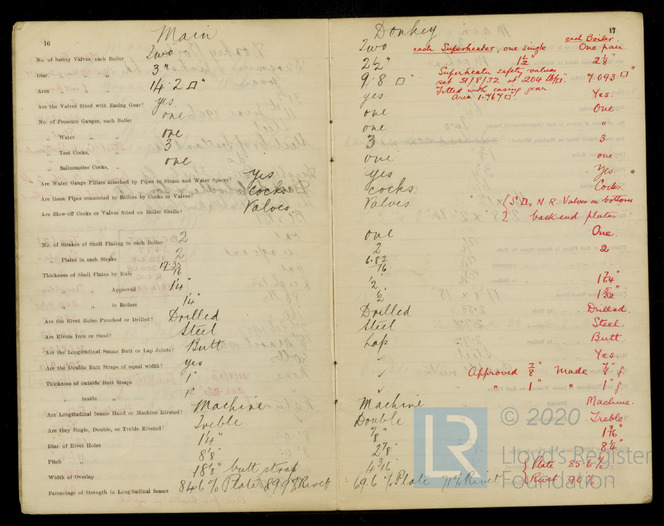 16 Main
No. of Safety Valves, each Boiler Two
Diar. „ „ 3"
Area „ „ 14·2 □"
Are the Valves fitted with Easing Gear? yes
No. of Pressure Gauges, each Boiler one
„ Water „ „ one
„ Test Cocks, „ 3
„ Salinometer Cocks, „ one
Are Water Gauge Pillars attached by Pipes to Steam and Water Spaces? yes
Are these Pipes connected to Boilers by Cocks or Valves? Cocks
Are Blow-off Cocks or Valves fitted on Boiler Shells? Valves
No. of Strakes of Shell Plating in each Boiler 2
„ Plates in each Strake 2
Thickness of Shell Plates by Rule
„ „ Approved 1¼"
„ „ in Boilers 1¼"
Are the Rivet Holes Punched or Drilled? Drilled
Are Rivets Iron or Steel? Steel
Are the Longitudinal Seams Butt or Lap Joints? Butt
Are the Double Butt Straps of equal width? yes
Thickness of outside Butt Straps 1"
„ inside „ 1"
Are Longitudinal Seams Hand or Machine Riveted? Machine
Are they Single, Double, or Treble Riveted? Treble
Diar. of Rivet Holes 1¼"
Pitch „ 8⅞"
Width of Overlap 18⅞" butt strap
Percentage of Strength in Longitudinal Seams 84.6% Plate 89.9% Rivet
Donkey 17
each Boiler.
Two each Superheater, one single One pair
2½" 1½" 2⅞"
9·8 □" Superheater safety valves 7.093 □"
set 31/8/32 at 204 lbs/□"
yes Fitted with easing gear Yes.
Area 1·767 □"
one One
one "
3 3
one one
yes Yes
Cocks Cocks.
Valves (S.D., N.R. Valves on bottom
2 back end plates
one One.
2 2
6.82/16
½" 1¼"
½"
Drilled Drilled
Steel Steel.
Lap Butt
Yes.
Approved ⅞" Made ⅞"
" 1" " 1"
Machine Machine.
Double Treble
⅞" 1 3/16"
2⅞" 8¼"
4 3/16"
69.6% Plate 71% Rivet { Plate 85.6%
{ Rivet 90%
LR © 2020
Lloyd's Register
Foundation